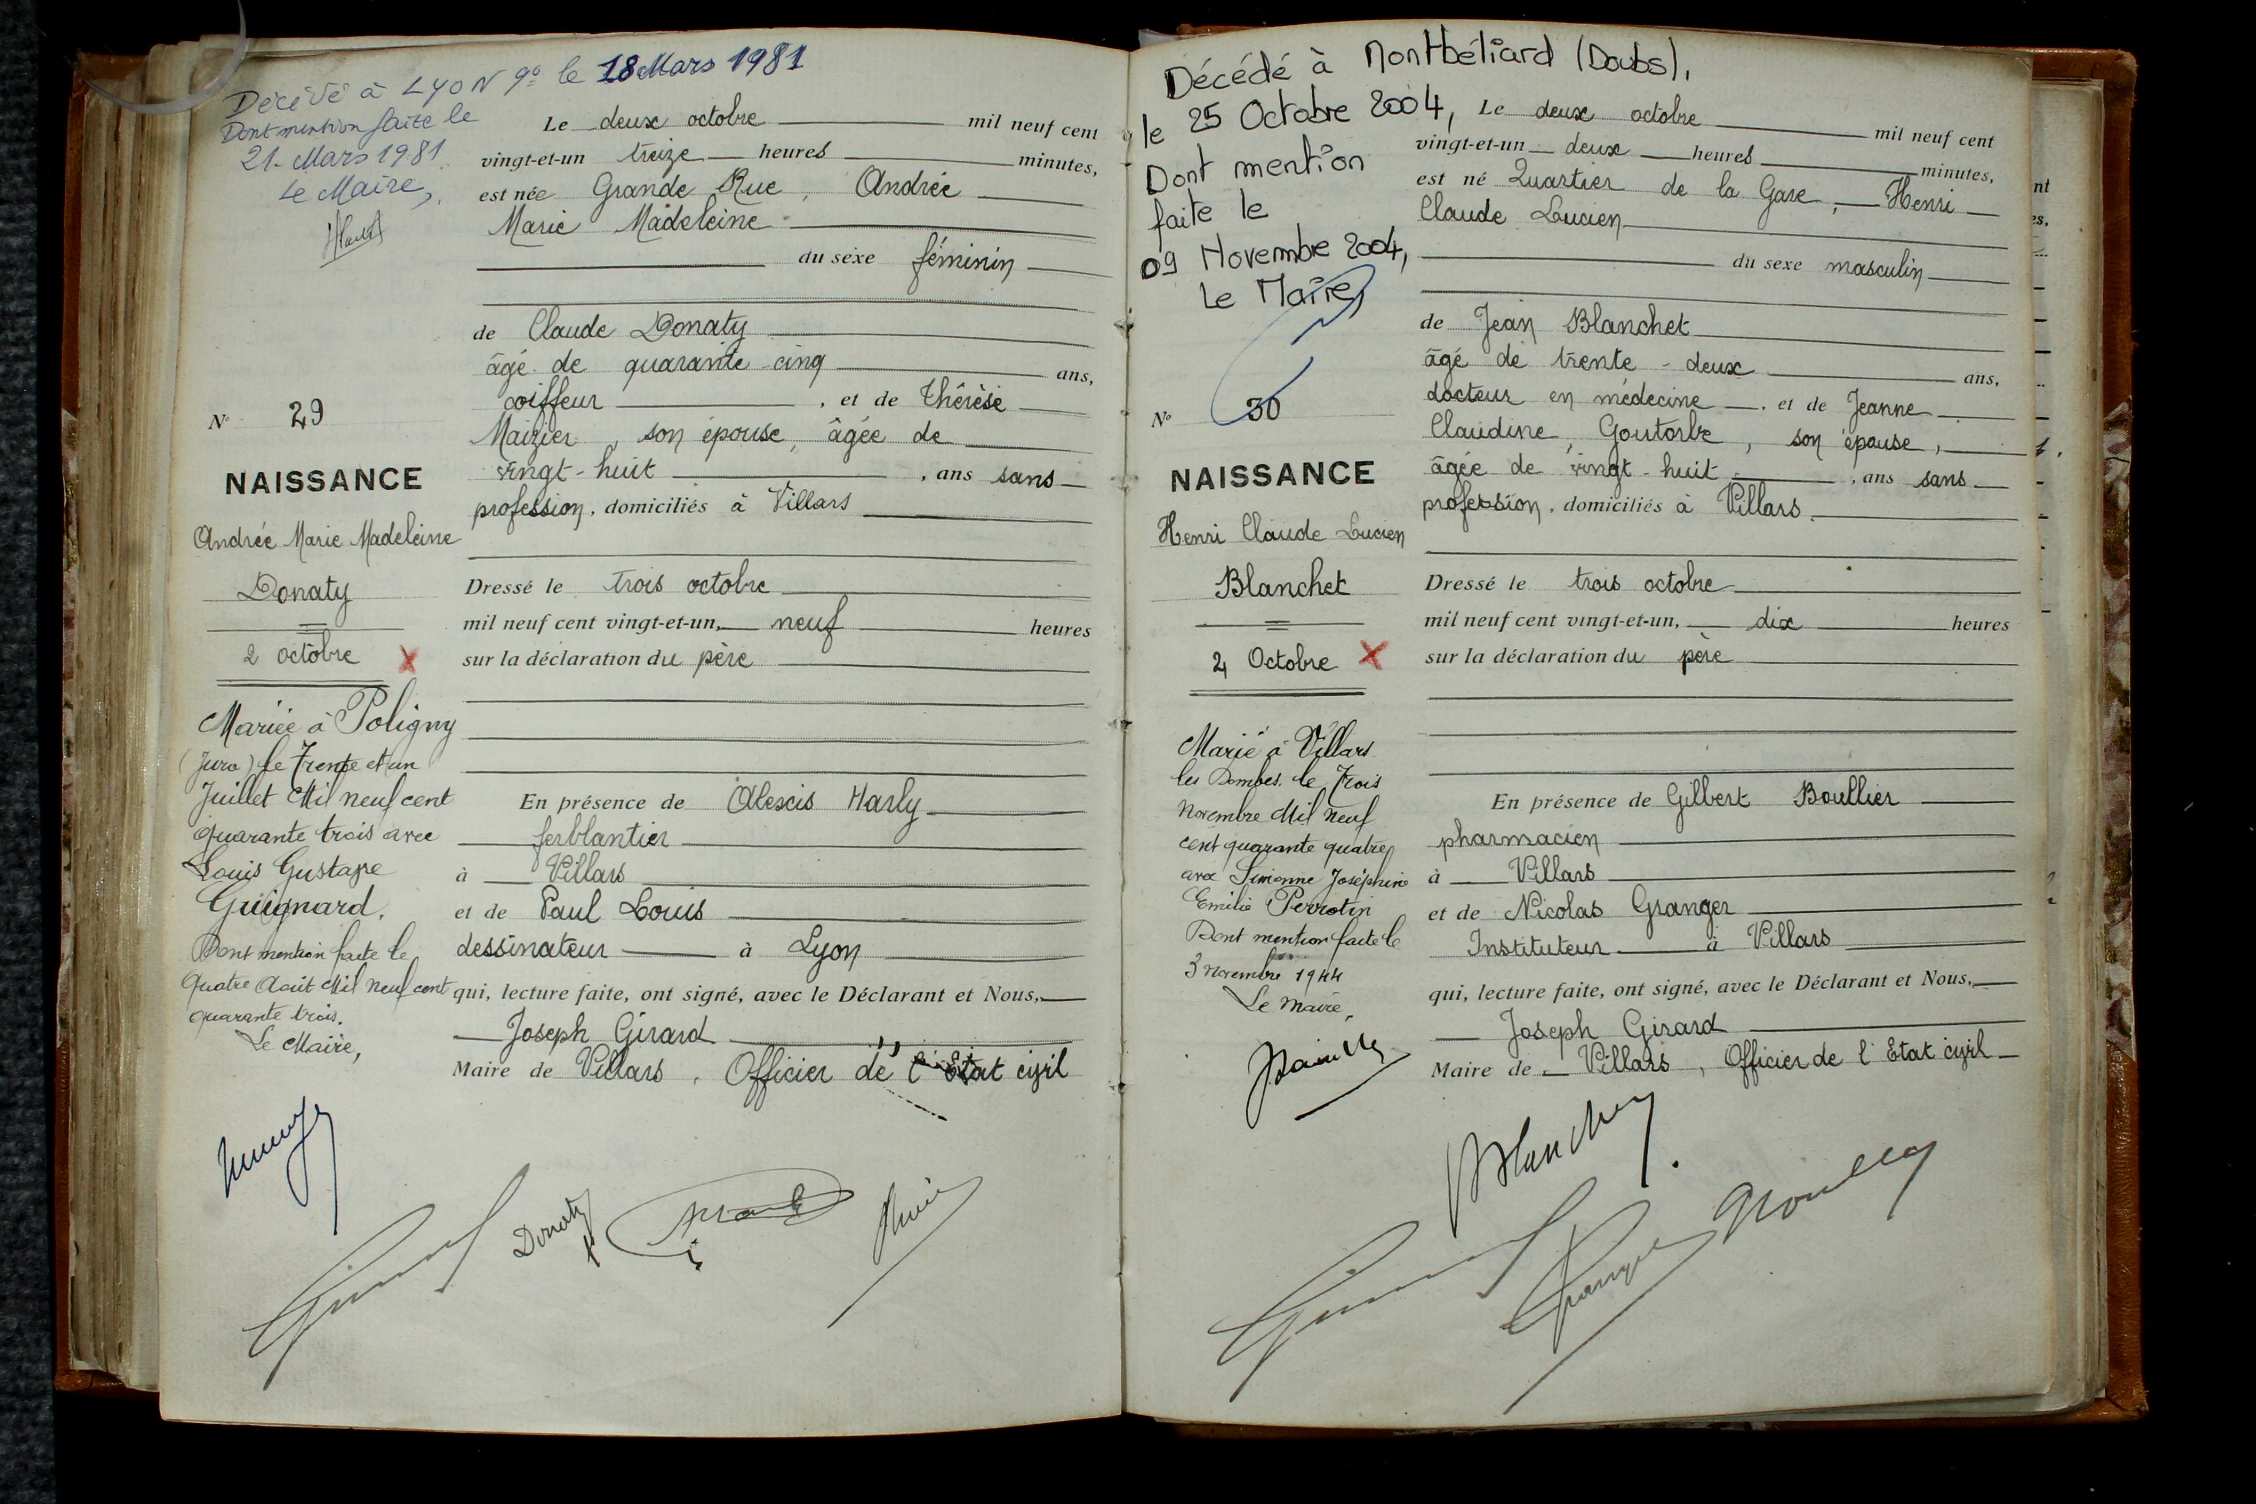 Décédé à LYON 9º le 18 Mars 1981
Dont mention faite le
21 - Mars 1981.
Le Maire,
Le deux octobre mil neuf cent
vingt-et-un treize heures minutes,
est née Grande Rue, Andrée
Marie Madeleine
du sexe féminin
de Claude Donaty
âgé de quarante-cinq ans,
coiffeur, et de Thérèse
Maizier, son épouse, âgée de
vingt-huit, ans sans
profession, domiciliés à Villars
Dressé le trois octobre
mil neuf cent vingt-et-un, neuf heures
sur la déclaration du père
En présence de Alexis Marly
ferblantier
à Villars
et de Paul Louis
dessinateur à Lyon
qui, lecture faite, ont signé, avec le Déclarant et Nous,
Joseph Girard
Maire de Villars, Officier de l'Etat civil
Nº 29
NAISSANCE
Andrée Marie Madeleine
Donaty
2 octobre X
Mariée à Poligny
(Jura) le Trente et un
Juillet Mil neuf cent
quarante trois avec
Louis Gustave
Guignard.
Dont mention faite le
Quatre Août Mil neuf cent
quarante trois.
Le Maire,
Donaty
Décédé à Montbéliard (Doubs),
le 25 Octobre 2004,
Dont mention
faite le
09 Novembre 2004,
Le Maire,
Le deux octobre mil neuf cent
vingt-et-un deux heures minutes,
est né Quartier de la Gare, Henri
Claude Lucien
du sexe masculin
de Jean Blanchet
âgé de trente-deux ans,
docteur en médecine, et de Jeanne
Claudine, Goutorbe, son épouse,
âgée de vingt-huit, ans sans
profession, domiciliés à Villars.
Dressé le trois octobre
mil neuf cent vingt-et-un, dix heures
sur la déclaration du père
En présence de Gilbert Boullier
pharmacien
à Villars
et de Nicolas Granger
Instituteur à Villars
qui, lecture faite, ont signé, avec le Déclarant et Nous,
Joseph Girard
Maire de Villars, Officier de l'Etat civil
Nº 30
NAISSANCE
Henri Claude Lucien
Blanchet
2 Octobre X
Marié à Villars
les Dombes le Trois
Novembre Mil Neuf
cent quarante quatre
avec Simonne Joséphine
Emilie Perrotin
Dont mention faite le
3 novembre 1944
Le Maire,
Blanchet
Granger